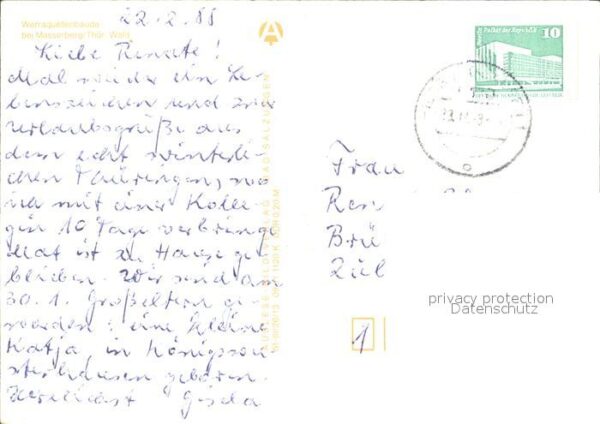 Werraquellenbaude
bei Masserberg/Thür. Wald
22.2.88
Liebe Renate!
Mal wieder ein Le-
benszeichen und zwar
Urlaubsgrüße aus
dem echt winterli-
chen Thüringen, wo
ich mit einer Kolle-
gin 10 Tage verbringe
Mat ist zu Hause ge-
blieben. Wir sind am
30.1. Großeltern ge-
worden: eine kleine
Katja, in Königswu-
sterhausen geboren.
Herzlichst Gisela
AUSLESE-BILD-VERLAG BAD SALZUNGEN
Palast der Republik
10
Frau
Ren
Brü
privacy protection
Datenschutz
1